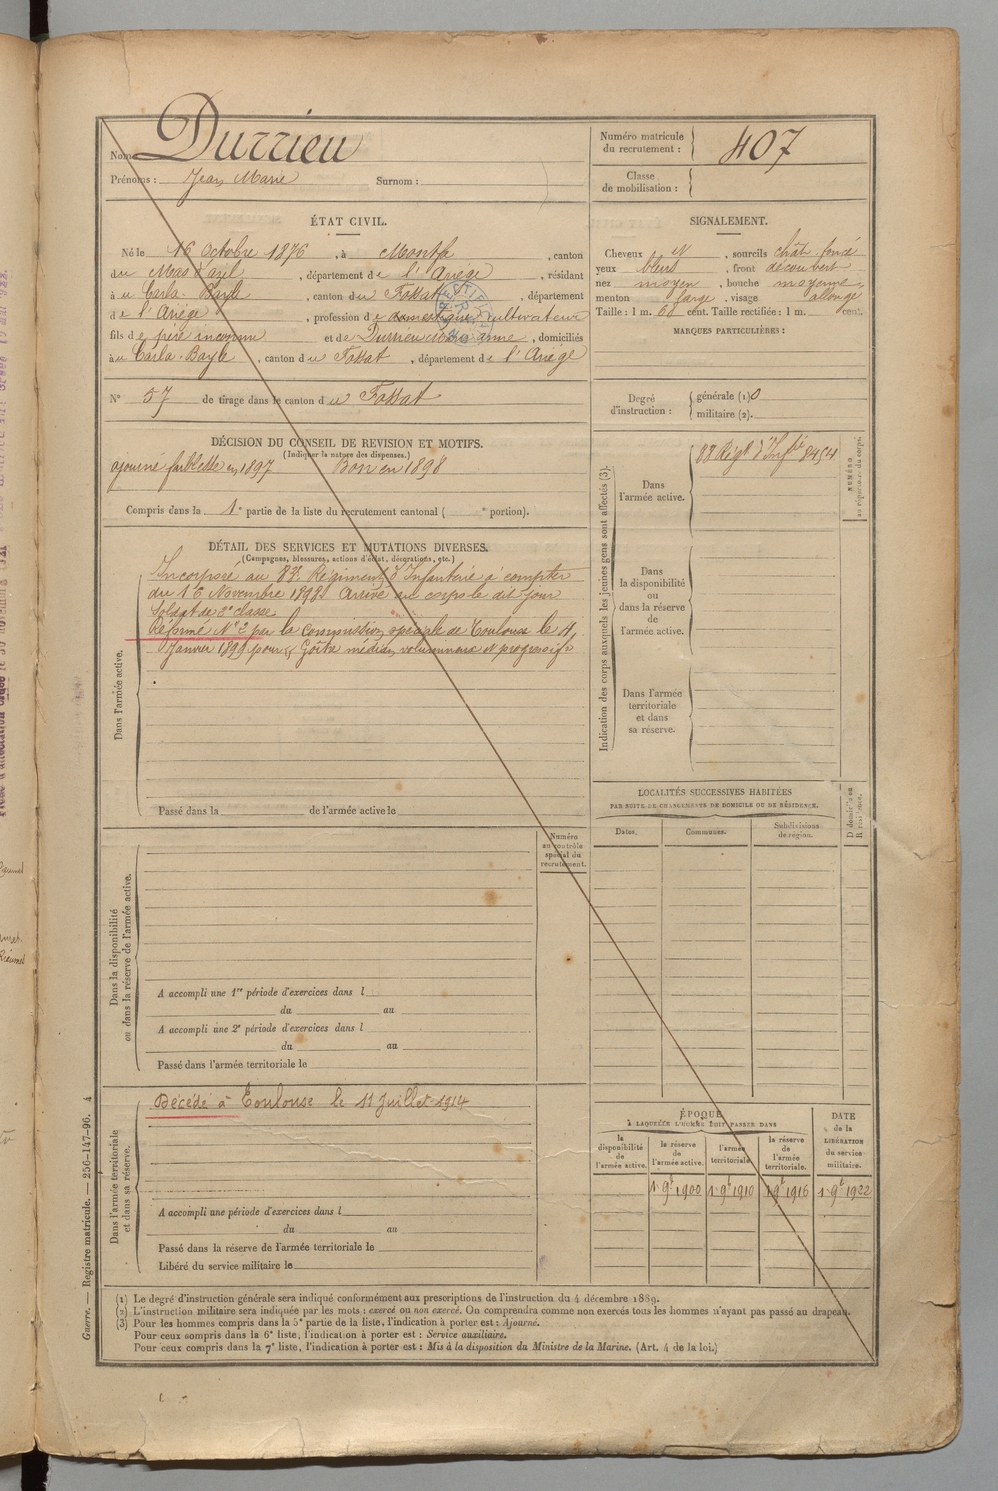 Nom Durrieu
Prénoms : Jean Marie Surnom :
Numéro matricule
du recrutement : 407
Classe
de mobilisation :
ÉTAT CIVIL.
Né le 16 Octobre 1876, à Montfa, canton
du Mas d'azil, département de l'Ariège, résidant
à u Carla-Bayle, canton du Fossat, département
de l'Ariège, profession de domestique cultivateur
fils de père inconnu et de Durrieu, domiciliés
à u Carla-Bayle, canton du Fossat, département de l'Ariège
SIGNALEMENT.
Cheveux N, sourcils chât. foncé
yeux bleus, front découvert
nez moyen, bouche moyenne,
menton large, visage allongé
Taille : 1 m. 68 cent. Taille rectifiée : 1 m. cent.
MARQUES PARTICULIÈRES :
N° 57 de tirage dans le canton du Fossat
Degré
d'instruction : générale (1) 0
militaire (2).
DÉCISION DU CONSEIL DE REVISION ET MOTIFS.
(Indiquer la nature des dispenses.)
ajourné faiblesse en 1897 Bon en 1898
Compris dans la 1e partie de la liste du recrutement cantonal ( e portion).
DÉTAIL DES SERVICES ET MUTATIONS DIVERSES.
(Campagnes, blessures, actions d'éclat, décorations, etc.)
Dans l'armée active.
Incorporé au Régiment d'Infanterie à compter
du 16 Novembre 1898 Arrivé au corps le dit jour
Soldat de 2e classe
Réformé N° 2 par la Commission spéciale de Toulouse le 4
Janvier 1899 pour Goître médian volumineux et progressif
Passé dans la de l'armée active le
Indication des corps auxquels les jeunes gens sont affectés (3).
NUMÉRO
au répertoire du corps.
Dans
l'armée active.
88 Régt d'Infie 8454
Dans
la disponibilité
ou
dans la réserve
de
l'armée active.
Dans l'armée
territoriale
et dans
sa réserve.
LOCALITÉS SUCCESSIVES HABITÉES
PAR SUITE DE CHANGEMENTS DE DOMICILE OU DE RÉSIDENCE.
Dates. Communes. Subdivisions
de région.
D domicile ou
R résidence.
Numéro
au contrôle
spécial du
recrutement.
Dans la disponibilité
ou dans la réserve de l'armée active.
A accompli une 1re période d'exercices dans l
du au
A accompli une 2e période d'exercices dans l
du au
Passé dans l'armée territoriale le
Dans l'armée territoriale
et dans sa réserve.
Décédé à Toulouse le 11 Juillet 1914
A accompli une période d'exercices dans l
du au
Passé dans la réserve de l'armée territoriale le
Libéré du service militaire le
ÉPOQUE
À LAQUELLE L'HOMME DOIT PASSER DANS
la
disponibilité
de
l'armée active.
la réserve
de
l'armée active.
l'armée
territoriale.
la réserve
de
l'armée
territoriale.
DATE
de la
LIBÉRATION
du service
militaire.
1 9t 1900 1 9t 1910 1 9t 1916 1 9t 1922
Guerre. — Registre matricule. — 256-147-96. 4
(1) Le degré d'instruction générale sera indiqué conformément aux prescriptions de l'instruction du 4 décembre 1889.
(2) L'instruction militaire sera indiquée par les mots : exercé ou non exercé. On comprendra comme non exercés tous les hommes n'ayant pas passé au drapeau.
(3) Pour les hommes compris dans la 5e partie de la liste, l'indication à porter est : Ajourné.
Pour ceux compris dans la 6e liste, l'indication à porter est : Service auxiliaire.
Pour ceux compris dans la 7e liste, l'indication à porter est : Mis à la disposition du Ministre de la Marine. (Art. 4 de la loi.)